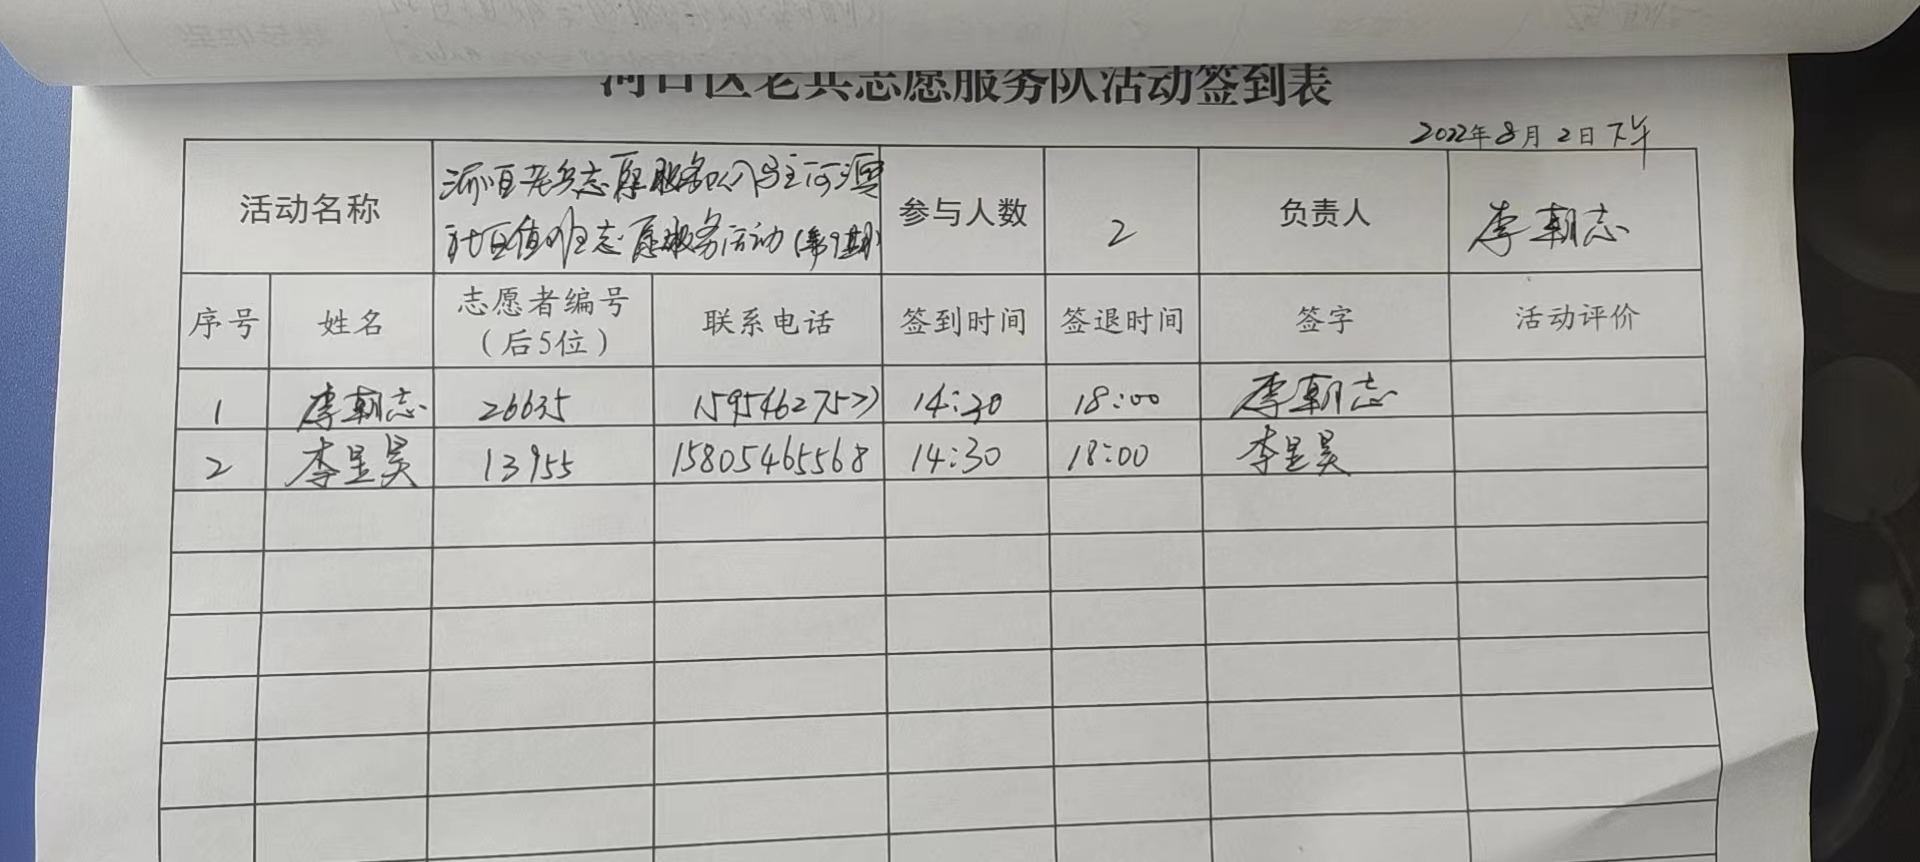 河口区老兵志愿服务队活动签到表
2022年8月2日下午
活动名称 河口区老兵志愿服务队 社区值班志愿服务活动(第9期) 参与人数 2 负责人 李朝志
序号 姓名 志愿者编号(后5位) 联系电话 签到时间 签退时间 签字 活动评价
1 李朝志 26635 14:30 18:00 李朝志
2 李呈昊 13955 15805465568 14:30 18:00 李呈昊